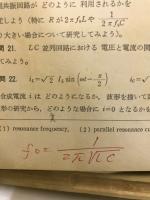 共振回路が どのように 利用されるかを
しよう (特に R が 2πf₀L や 1/2πf₀C
り大きい場合について研究してみよう)。
問 21. LC 並列回路における 電圧と電流の関
てみよう。
問 22. i₁=√2 I₁ sin(ωt−π/2) i₂=√
合成電流 i は どのようになるか, 波形を描いて
形の研究から, どのような場合に i=0 となるかを
(1) resonance frequency, (2) parallel resonance
f₀ = 1/2π√LC